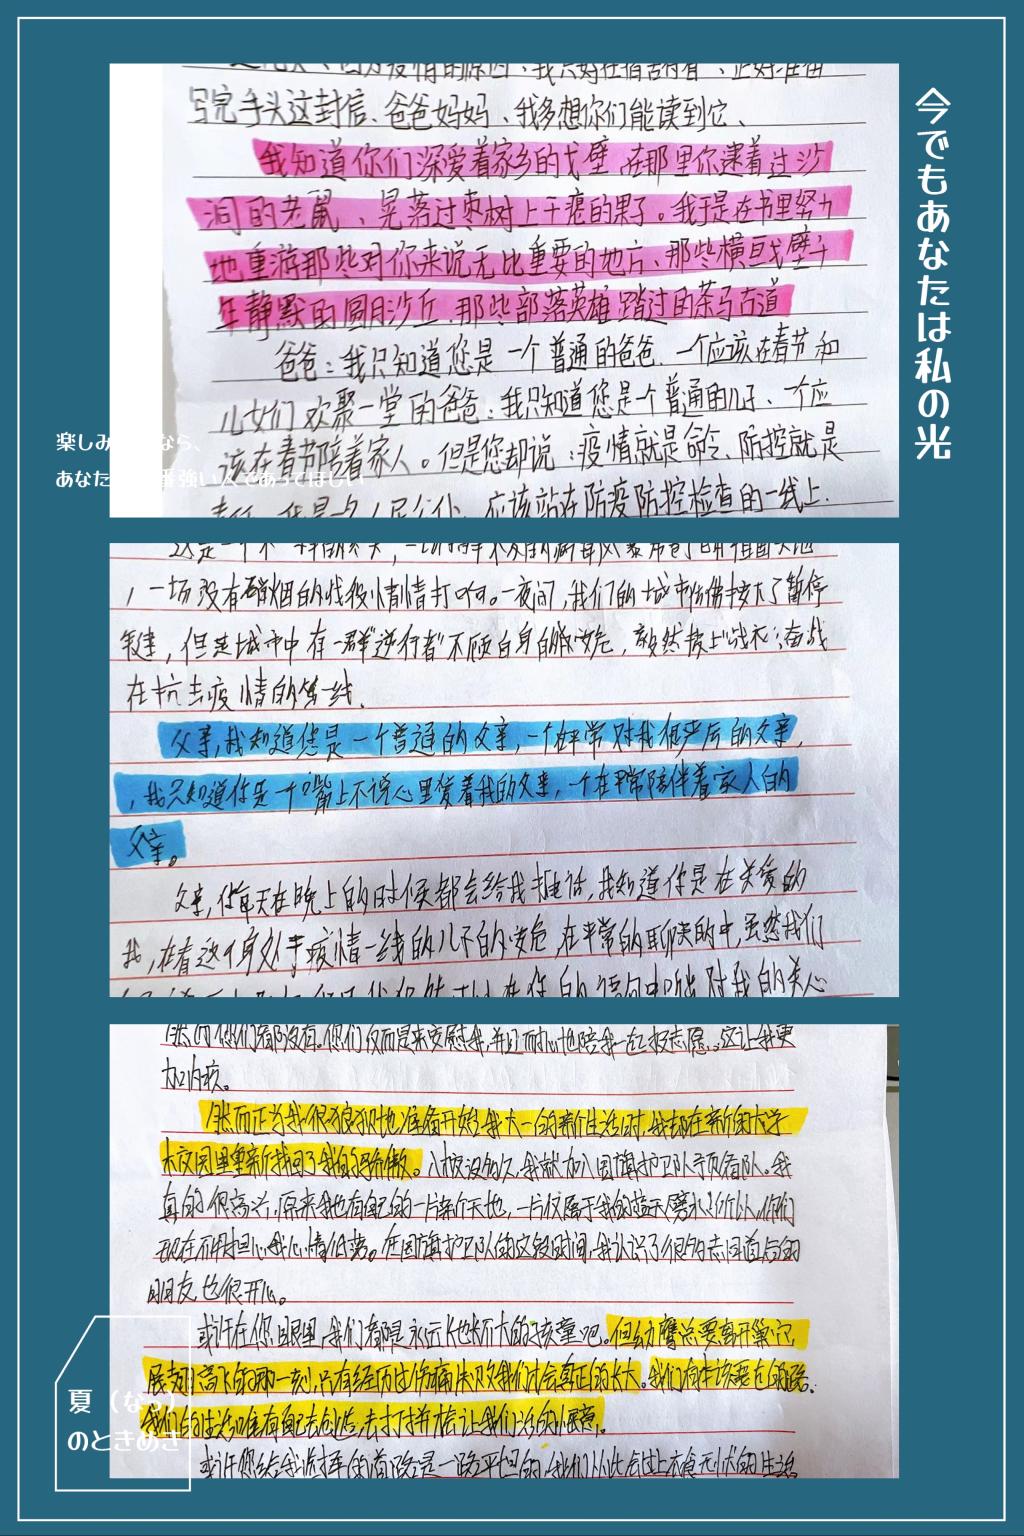 今でもあなたは私の光
写完手头这封信、爸爸妈妈、我多想你们能读到它、
我知道你们深爱着家乡的戈壁、在那里你逮着过沙
洞的老鼠、晃落过枣树上干瘪的果子。我于是在书里努力
地重游那些对你来说无比重要的地方、那些横亘戈壁千
年静默的圆月沙丘、那些部落英雄踏过的茶马古道
爸爸：我只知道您是一个普通的爸爸、一个应该在春节和
儿女们欢聚一堂的爸爸、我只知道您是个普通的儿子、一个应
该在春节陪着家人。但是您却说：疫情就是命令、防控就是
应该站在防疫防控检查的一线上.
楽しみ なら、
あなた 番強い であってほしい
，一场没有硝烟的战役悄悄打响。一夜间，我们的城市仿佛按下了暂停
键，但是城市中有一群“逆行者”不顾自身的安危，毅然披上战衣；奋战
在抗击疫情的第一线.
父亲，我知道您是一个普通的父亲，一个平常对我 的父亲，
，我只知道你是一个嘴上不说心里爱着我的父亲，一个在平常陪伴着家人的
父亲。
父亲，你每天在晚上的时候都会给我打电话，我知道你是在关爱的
我，在着这个身处于疫情一线的儿子的安危，在平常的聊天的中，虽然我们
对我的关心
然而你们都没有。你们反而是来安慰我，并且耐心地陪我一起报志愿。这让我更
加内疚。
然而正当我很狼狈地准备开始我大一的新生活时，我却在新的大学
校园里重新找回了我的骄傲。 没多久，我就加入国旗护卫队 队。我
真的很高兴，原来我也有自己的一片新天地，一片仅属于我的蓝天 所以，你们
现在不用担心我心情低落。在国旗护卫队的这段时间，我认识了很多志同道合的
朋友也很开心。
或许在你眼里，我们都是永远长也长不大的孩童吧。但幼鹰总要离开巢穴，
展翅高飞的那一刻，只有经历过伤痛 我们才会真正的长大。我们有 该要走的路，
我们 的生活唯有自己去创造，去打拼 让我们 的 。
或许您给我选择的道路是一路平坦的，我们从此会过上衣食无忧的生活
夏（なつ）
のときめき